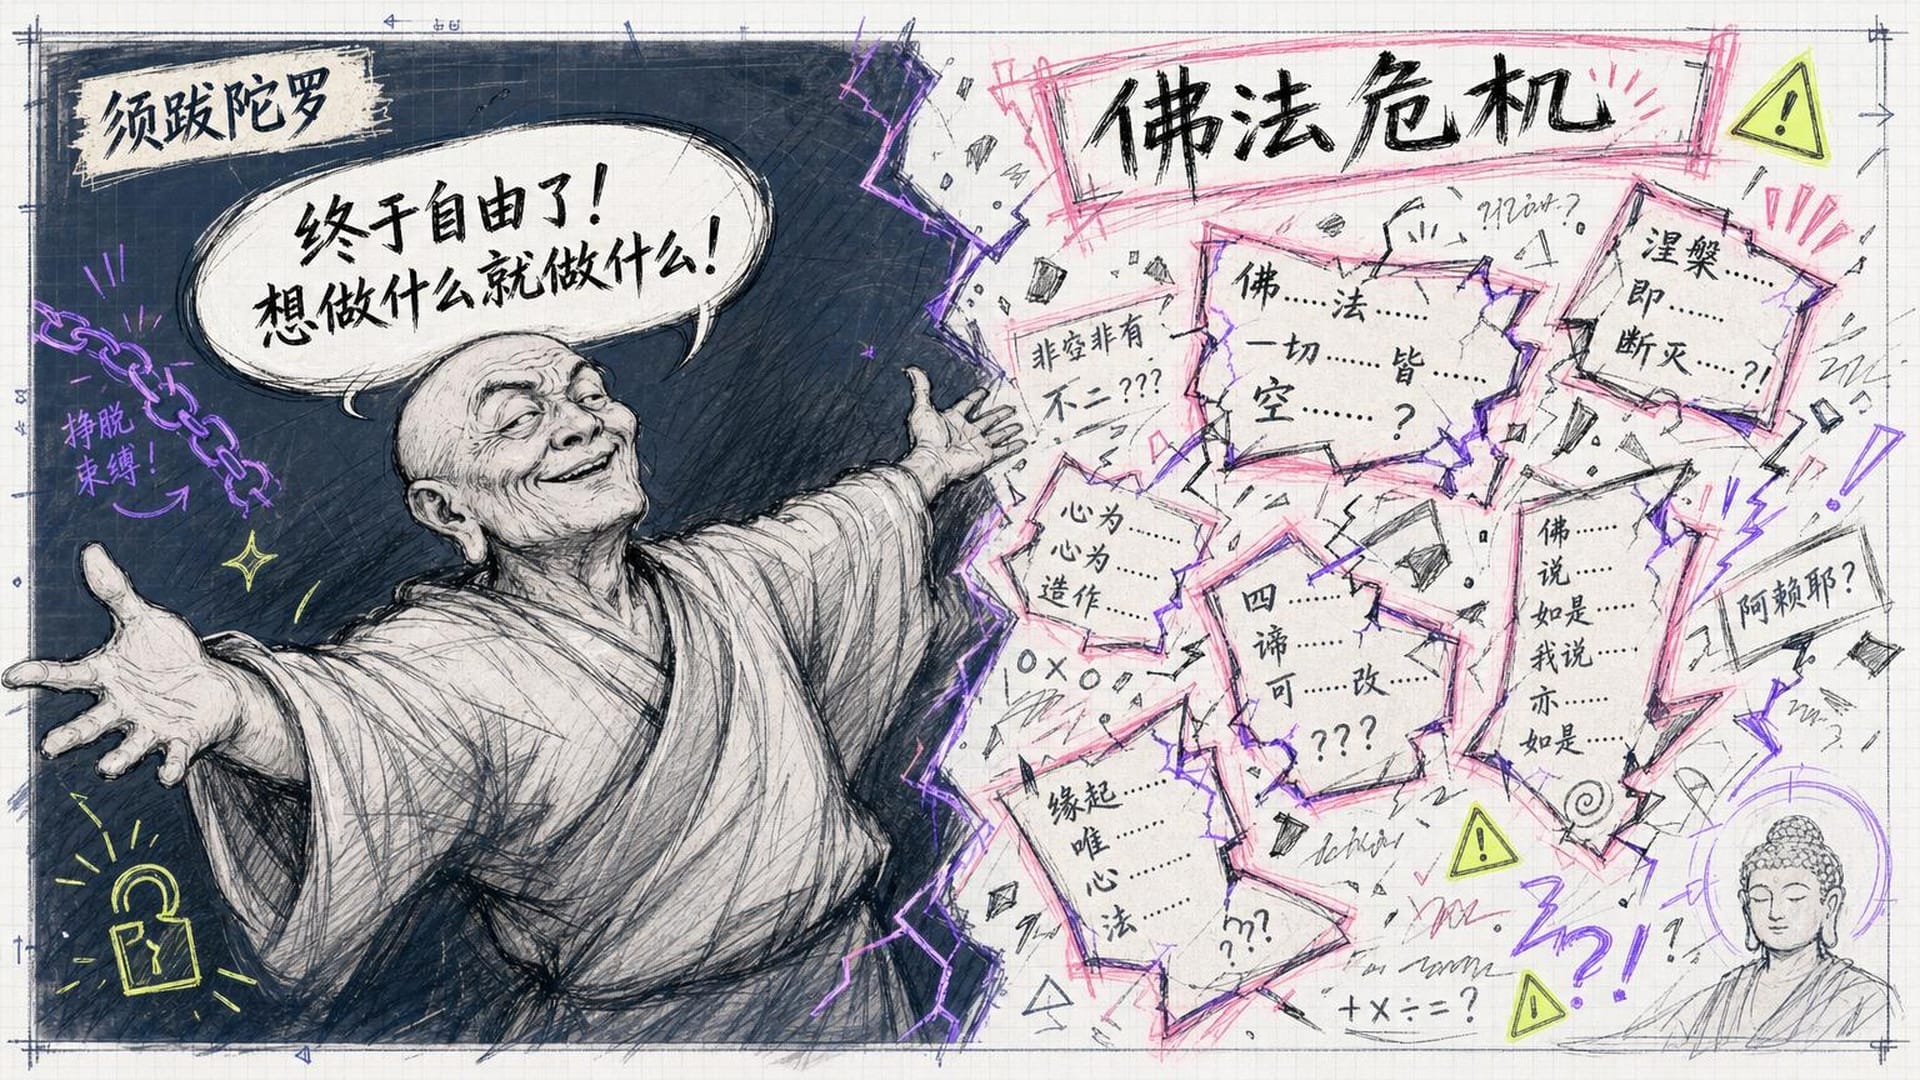 须跋陀罗
终于自由了！
想做什么就做什么！
挣脱
束缚！
佛法危机
非空非有
不二???
佛……法……
一切……皆……
空……?
涅槃……
即……
断灭……?!
心为……
心为……
造作……
四……
谛……
可……改……
???
佛……
说……
如是……
我说……
亦……
如是……
阿赖耶?
缘起……
唯……
心……
法……
???
+×÷=?